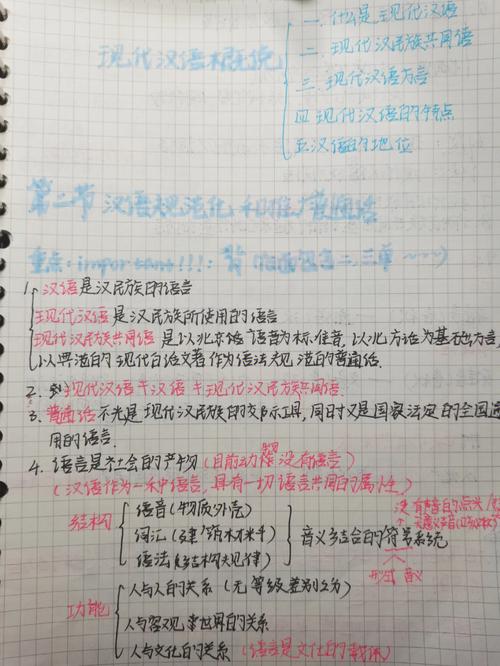 现代汉语概说
一. 什么是现代汉语
二. 现代汉民族共同语
三. 现代汉语方言
四 现代汉语的特点
五 汉语的地位
第二节 汉语规范化和推广普通话
重点:important!!!: 背
二、三章~~~)
1. 汉语是汉民族的语言
现代汉语是汉民族所使用的语言
现代汉民族共同语是以北京语音为标准音,以北方话为基础方言,
以典范的现代白话文著作为语法规范的普通话.
2. 现代汉语≠汉语≠现代汉民族共同语.
3. 普通话不光是现代汉民族的交际工具,同时又是国家法定的全国通
用的语言.
4. 语言是社会的产物(目前动物没有语言)
(汉语作为一种语言,具有一切语言共同的属性)
结构
语音(物质外壳)
词汇(建筑材料)
语法(结构规律)
音义结合的符号系统
没有声音的
形式 音义
功能
人与人的关系(无等级差别之分)
人与客观世界的关系
人与文化的关系(语言是文化的载体)